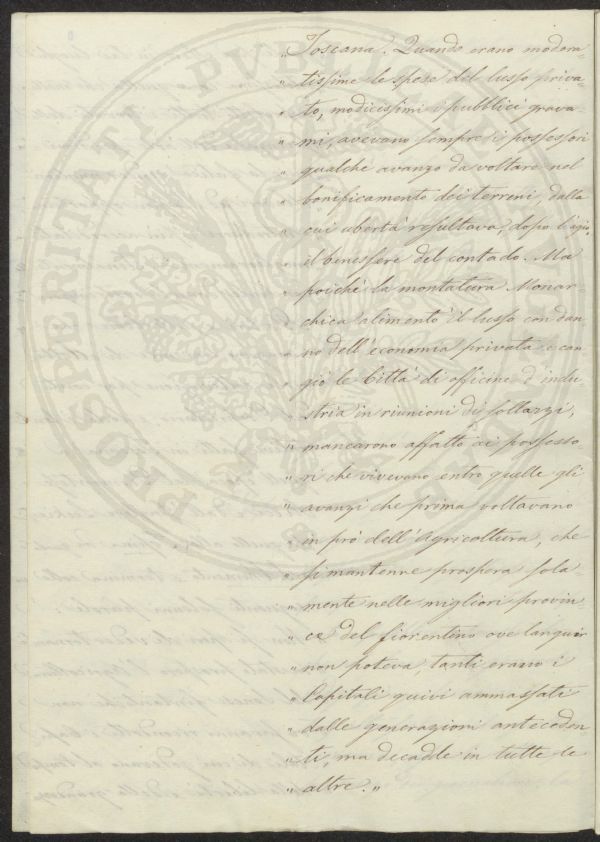 „ Toscana. Quando erano modera-
„ tissime le spese del lusso priva-
„ to, modicissimi i pubblici grava-
„ mi, avevano sempre i possessori
„ qualche avanzo da voltare nel
„ bonificamento dei terreni, dalla
„ cui ubertà resultava, dopo l'agio,
„ il benessere del contado. Ma
„ poichè la montatura Monar-
„ chica alimentò il lusso con dan-
„ no dell'economia privata e can-
„ giò le Città di officine d'indu-
„ stria in riunioni di sollazzi,
„ mancarono affatto ai possesso-
„ ri che vivevano entro quelle gli
„ avanzi che prima voltavano
„ in prò dell'Agricoltura, che
„ si mantenne prospera sola-
„ mente nelle migliori provin-
„ ce del fiorentino ove languir
„ non poteva, tanti erano i
„ Capitali quivi ammassati
„ dalle generazioni anteceden
„ ti, ma decadde in tutte le
„ altre. „
PROSPERITATI PUBLICAE